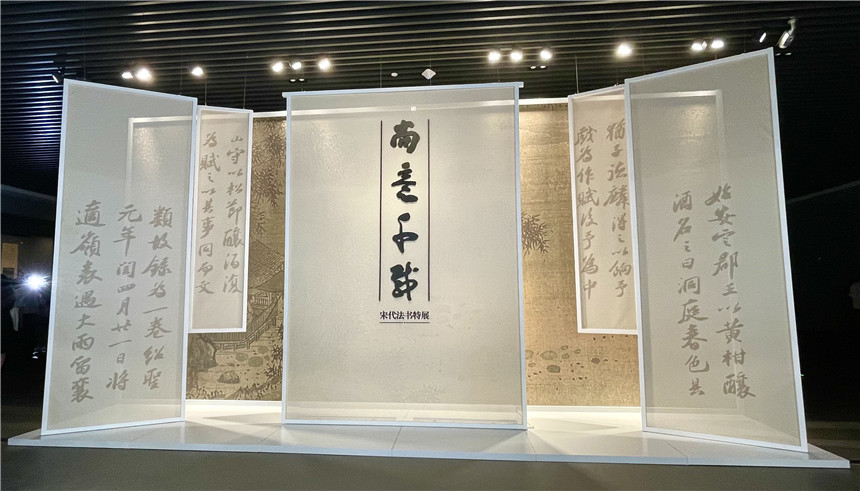 尚意千載
宋代法书特展
始安定郡王以黄柑釀
酒名之曰洞庭春色其
猶子德麟得之以餉予
戲為作賦後予為中
山守以松節釀酒復
為賦之以其事同而文
類故錄為一卷紹聖
元年閏四月廿一日將
適嶺表遇大雨留襄